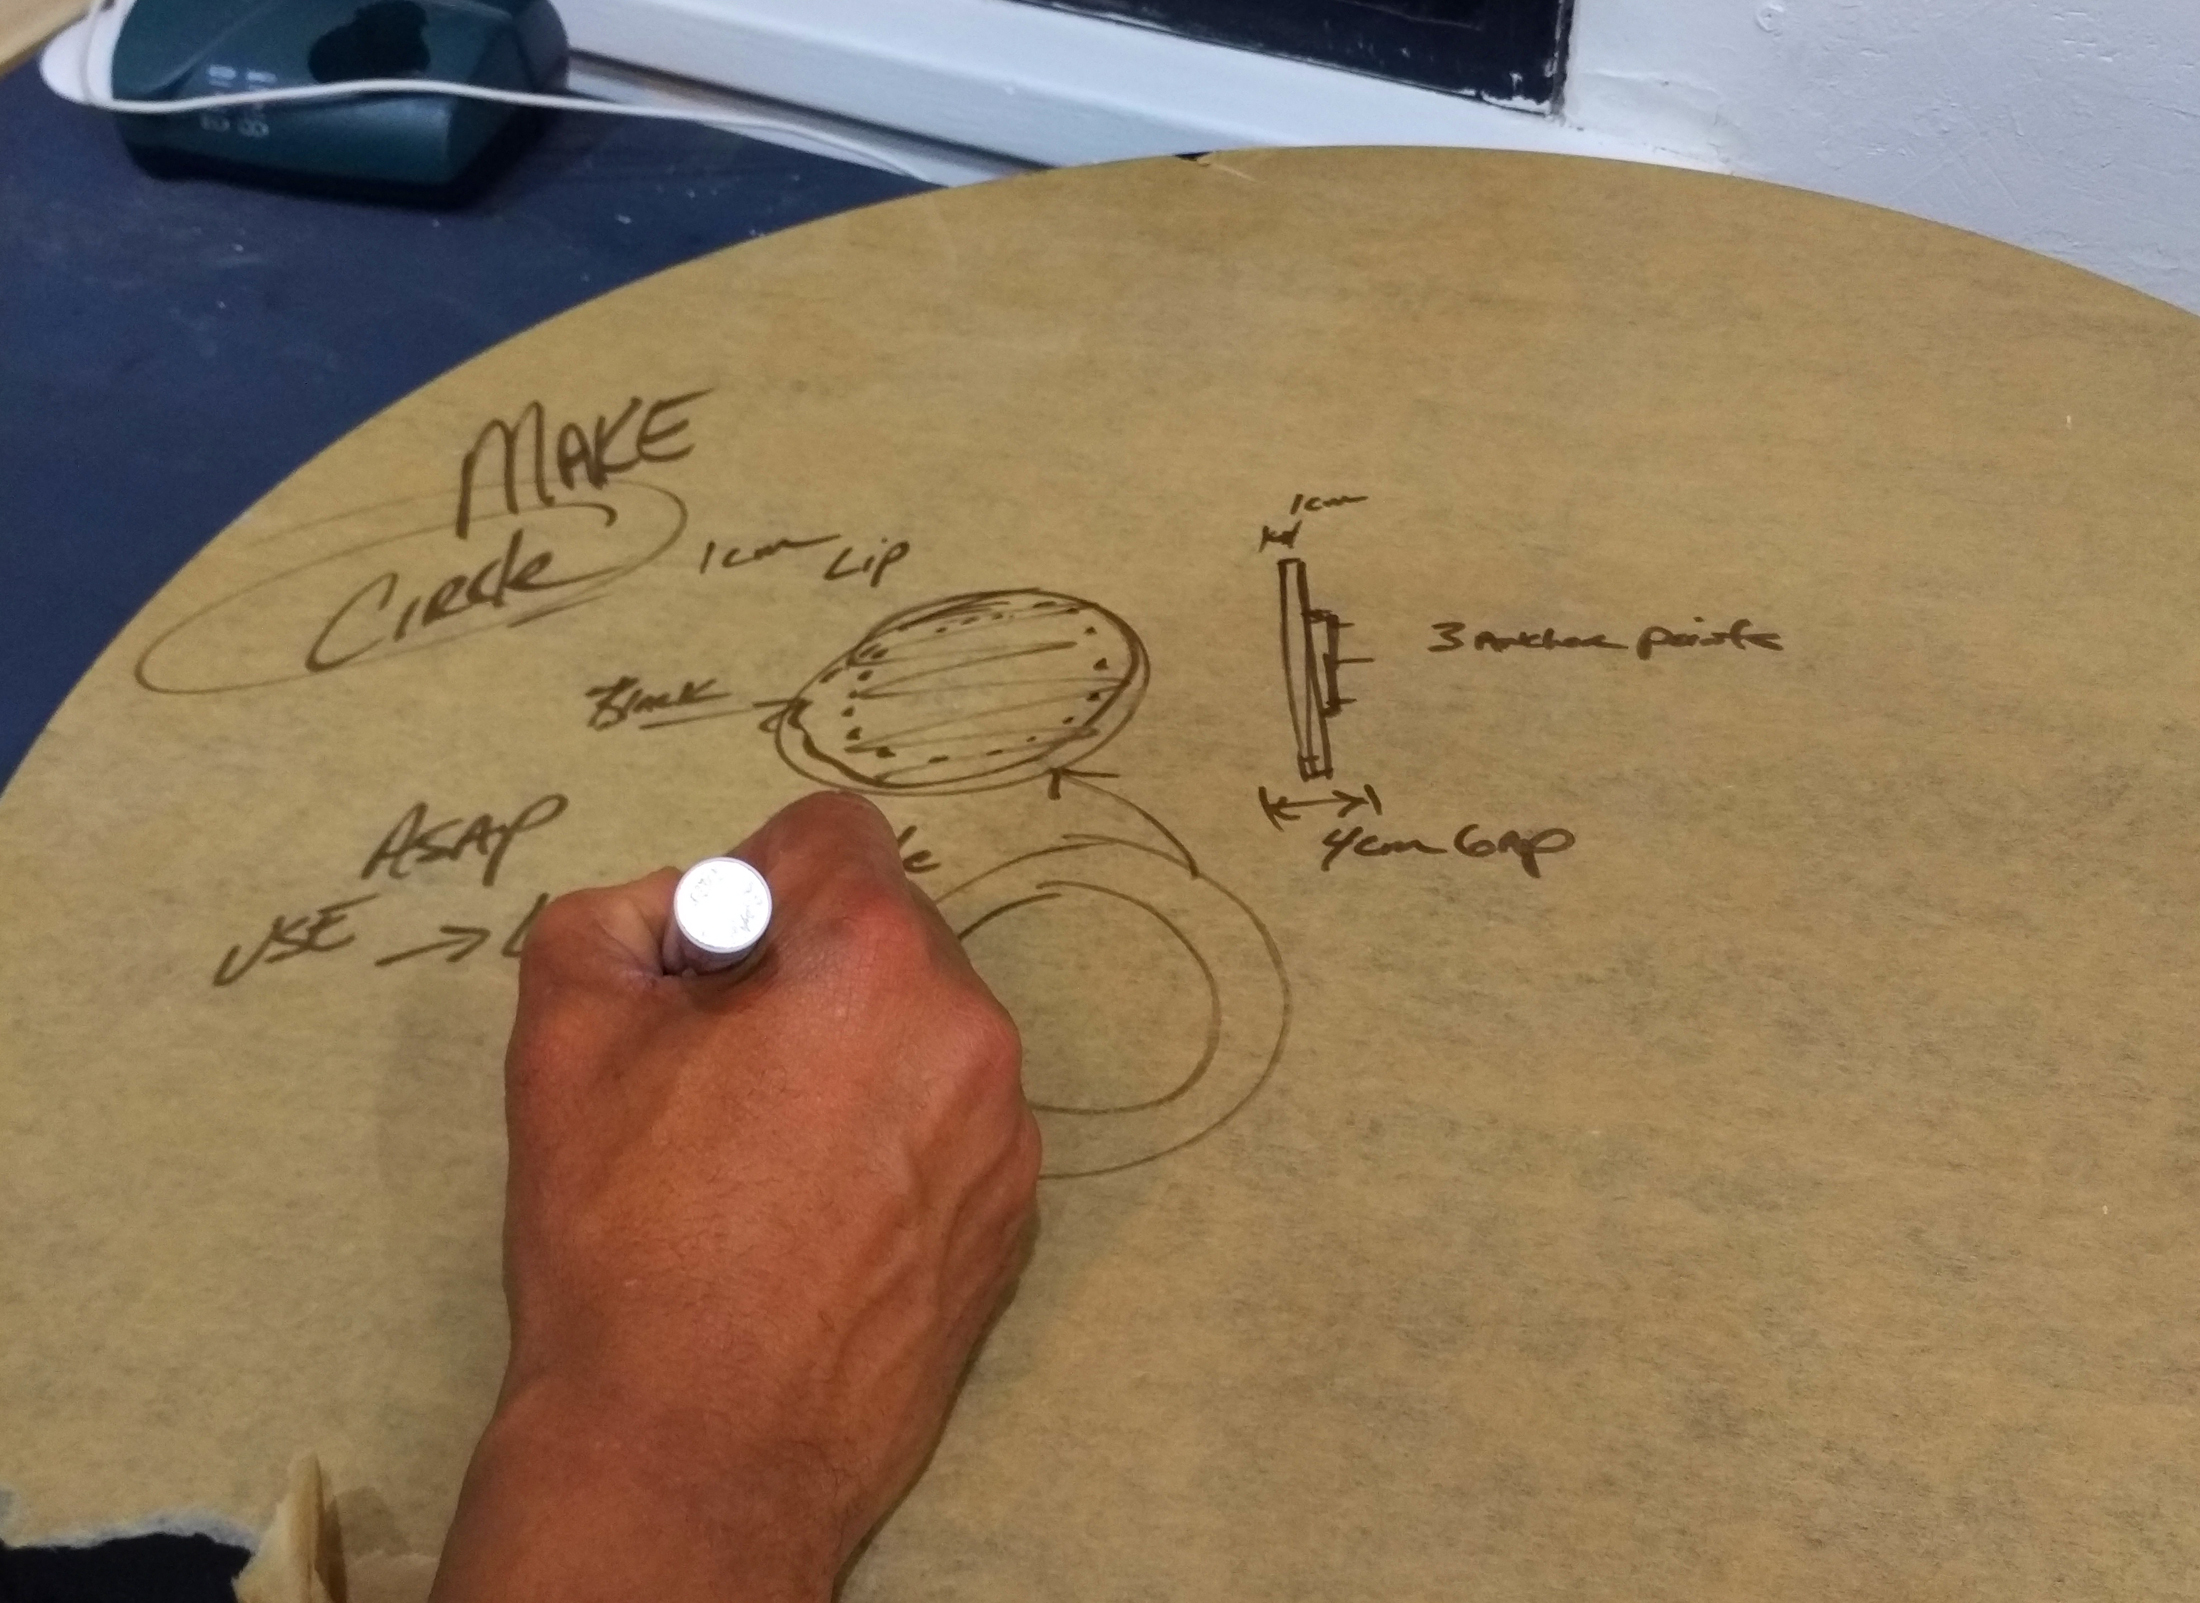 MAKE
Circle
1cm Lip
Black
1cm
3 Anchor points
4cm GAP
ASAP
USE →